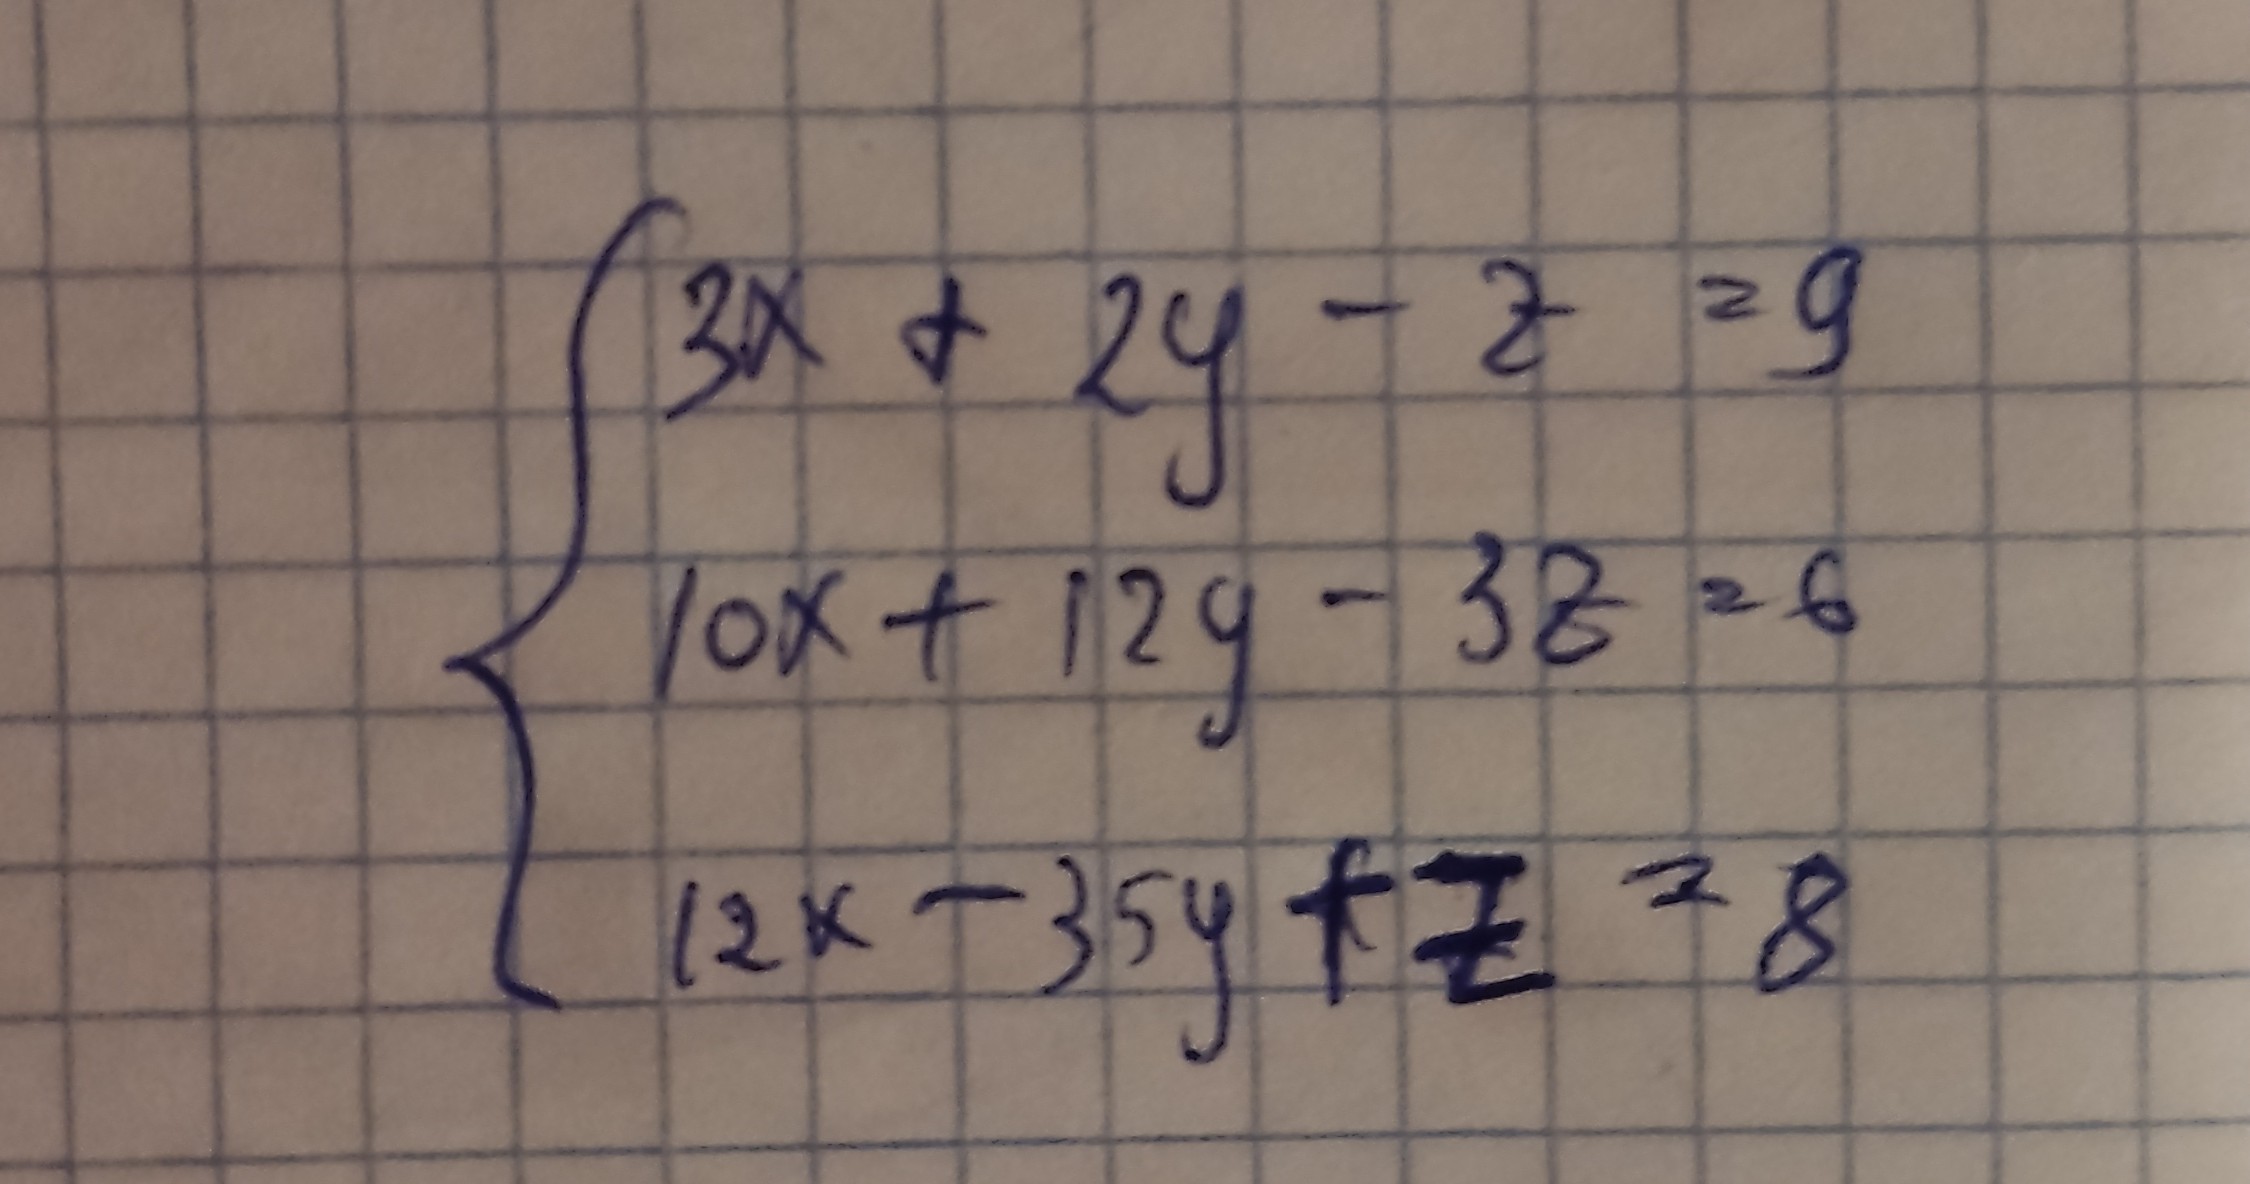 3x + 2y - z = 9
10x + 12y - 3z = 6
12x - 35y + z = 8